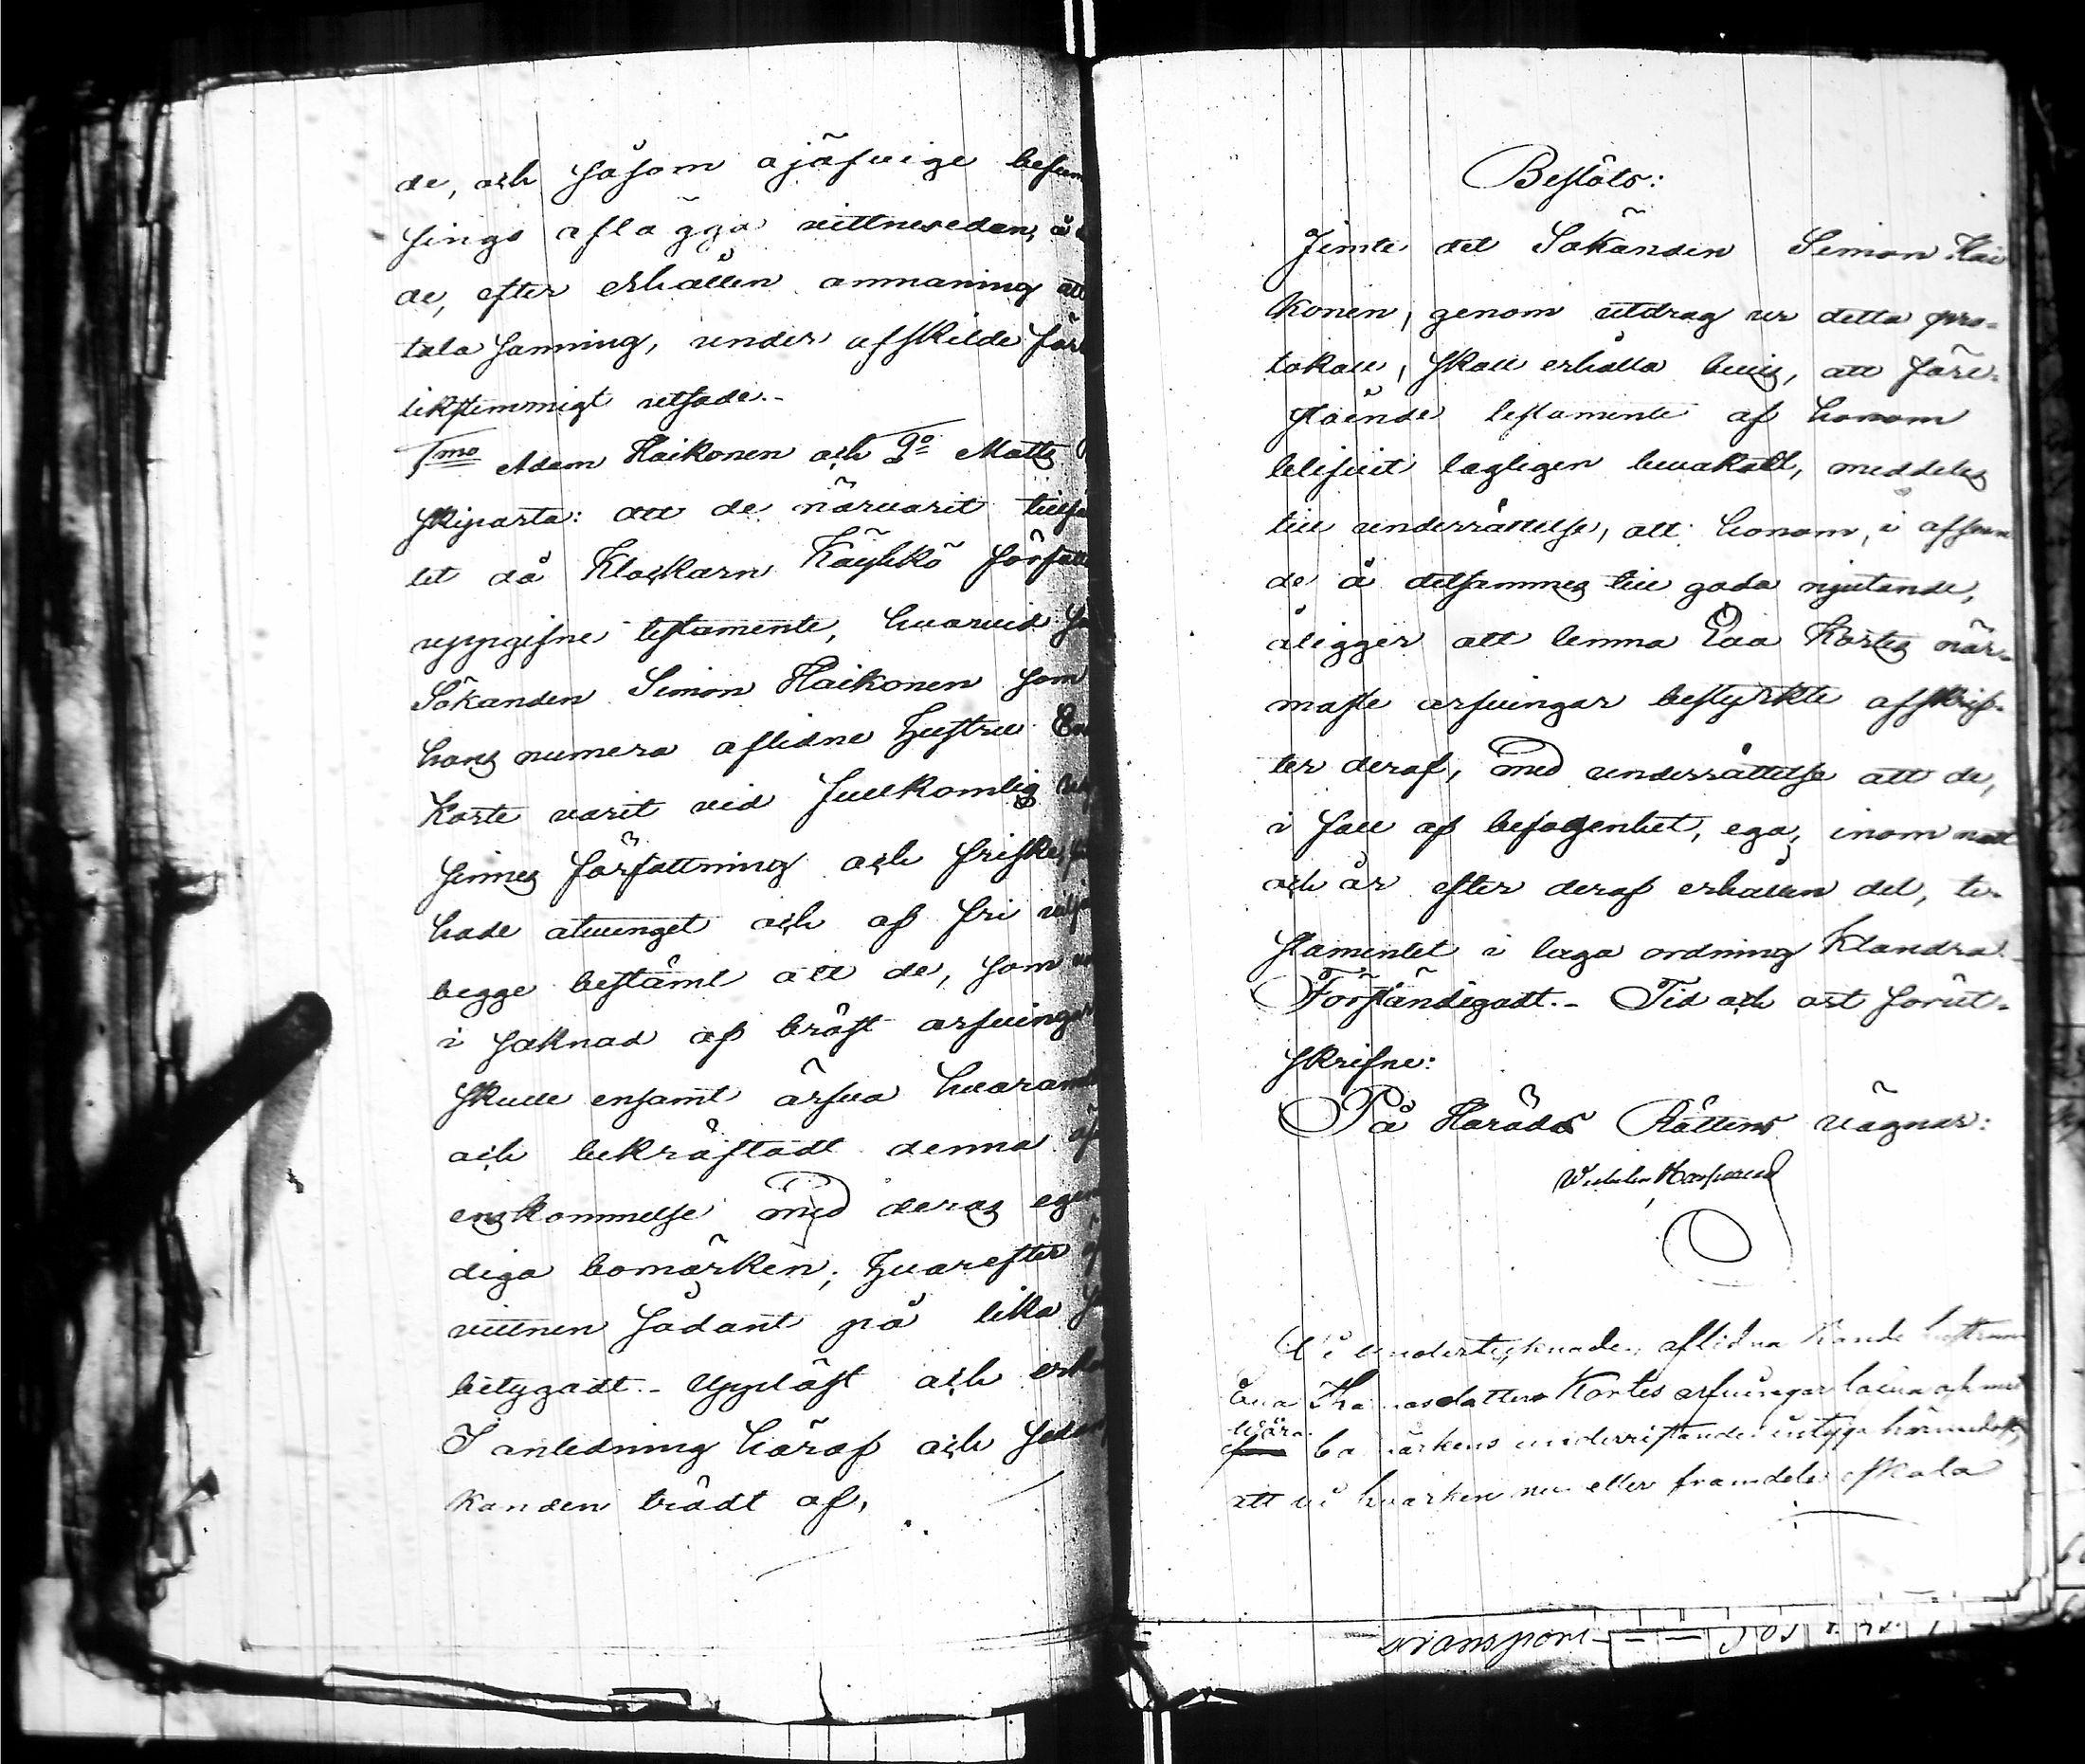 de, och såsom ojäfvige befun
fingo aflägga vittneseden,
de, efter erhållen anmaning att
tala sanning, under afskildeför
likstemmigt utsade.-
1mo Adam Haikonen och 2o Matts
Skiparta: att de närvarit
let då Klockarn Käyhkö författ
uppgifne testamente, hvarvid så
Sökanden Simon Haikonen som
hans numera aflidne Hustru
Korte varit vid fullkomlig
sinnes författning och friske,
hade otvunget och af fri vilj
begge bestämt att de, som
i saknad af bröst arfvingar
skulle ensamt ärfva hvaran
och bekräftadt denna öf
enskommelse med deras egen
diga bomärken; Hvarefter
vittnen sådant på lika
betygadt.- Uppläst och
I anledning häraf och sedan
kanden trädt af,
Beslöts:
Jemte det Sökanden Simon Hai
konen, genom utdrag ur detta pro-
tokoll, skall erhålla bevis, att före-
stående testamente af honom
blifvit lagligen bevakadt, meddeles
till underrättelse, att honom, i afseen
de å detsammes till godo njutande,
åligger att lemna Eva Kortes när-
maste arfvingar bestyrkte afskrif-
ter deraf, med underrättelse att de,
i fall af befogenhet, ega, inom natt
och år efter deraf erhållen del, te-
stamentet i laga ordning klandra.
Förständigadt.- Tid och ort förut-
skrifne:
På Härads Rättens vägnar:
Vi undertecknade, aflidna Bonde hustrun
Eva Thomasdotters Kortes arfvingar
våra
bomärkens undersittande intyga härmedelst,
att vi hvarken nu eller framdeles skola
Transport